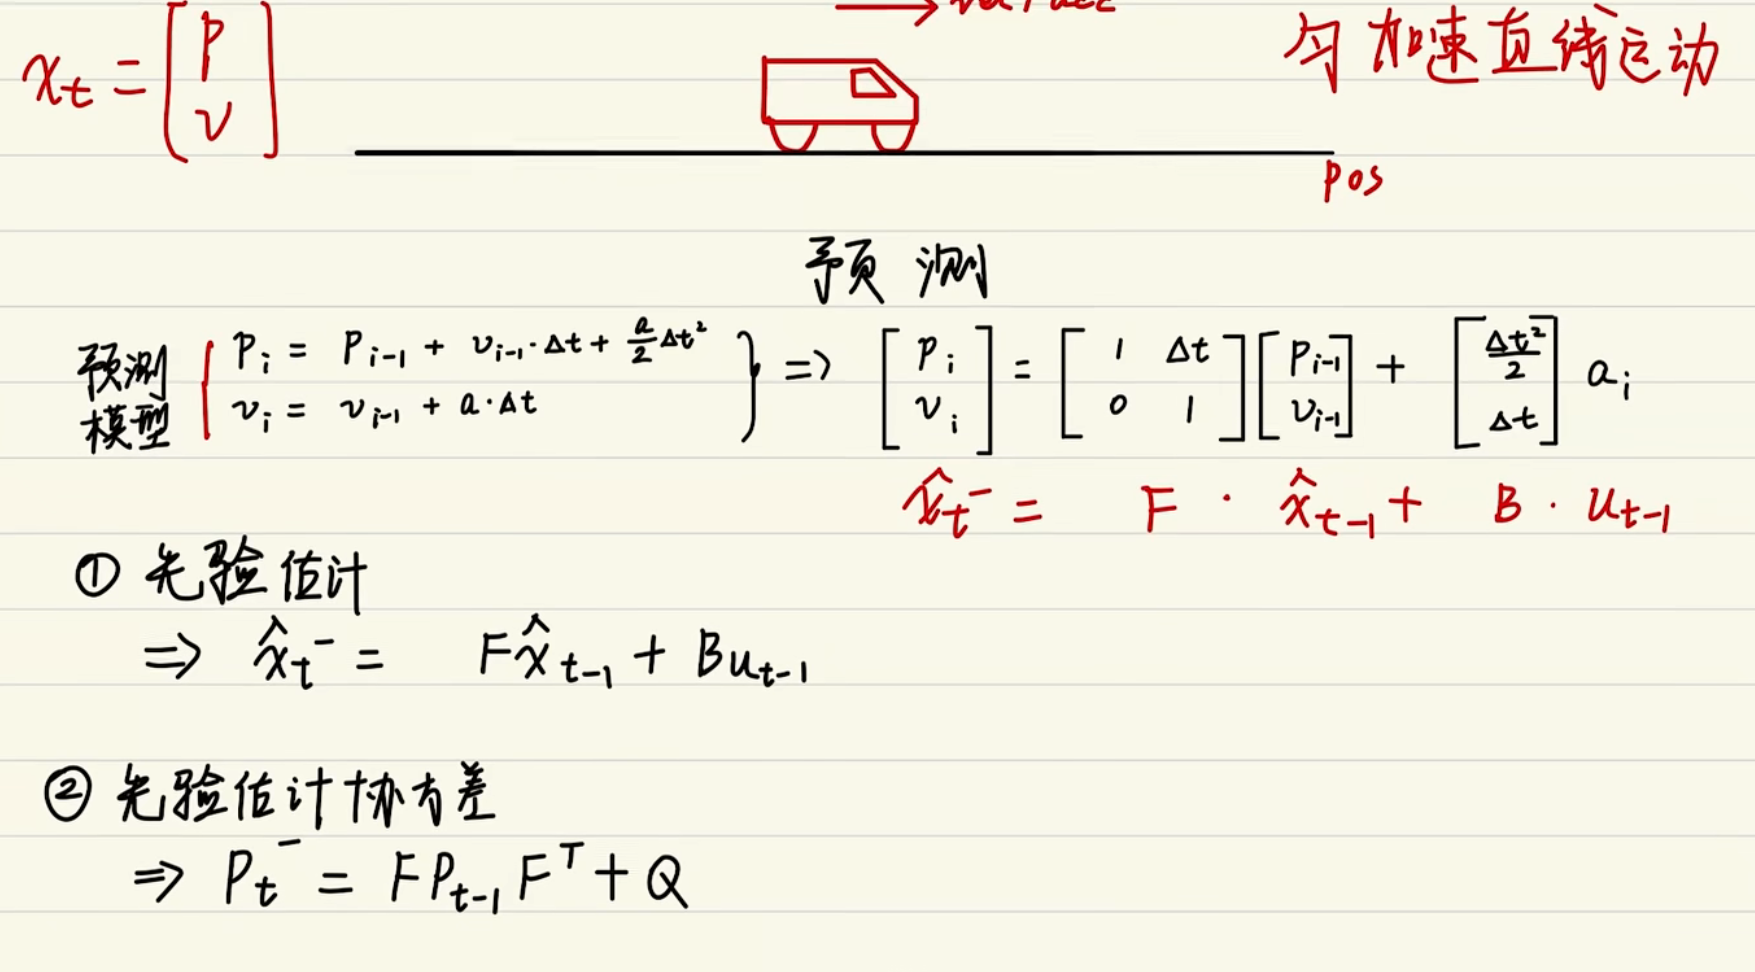 x_t = [p v]
匀加速直线运动
pos
预测
预测模型 { p_i = p_{i-1} + v_{i-1}·Δt + a/2 Δt² } => [p_i v_i] = [1 Δt 0 1] [p_{i-1} v_{i-1}] + [Δt²/2 Δt] a_i
v_i = v_{i-1} + a·Δt
x̂_t⁻ = F · x̂_{t-1} + B · u_{t-1}
① 先验估计
=> x̂_t⁻ = Fx̂_{t-1} + Bu_{t-1}
② 先验估计协方差
=> P_t⁻ = FP_{t-1}F^T + Q